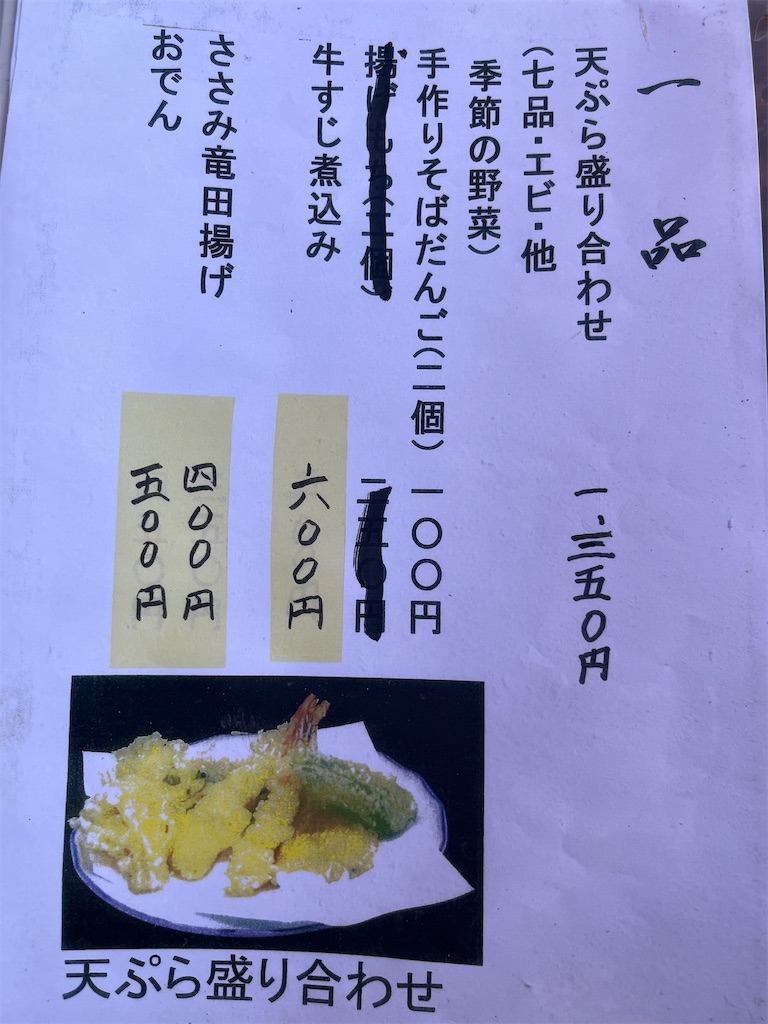 一品
天ぷら盛り合わせ 一、三五〇円
（七品・エビ・他
季節の野菜）
手作りそばだんご（二個） 一〇〇円
揚げもち（二個）
牛すじ煮込み 六〇〇円
ささみ竜田揚げ 四〇〇円
おでん 五〇〇円
天ぷら盛り合わせ